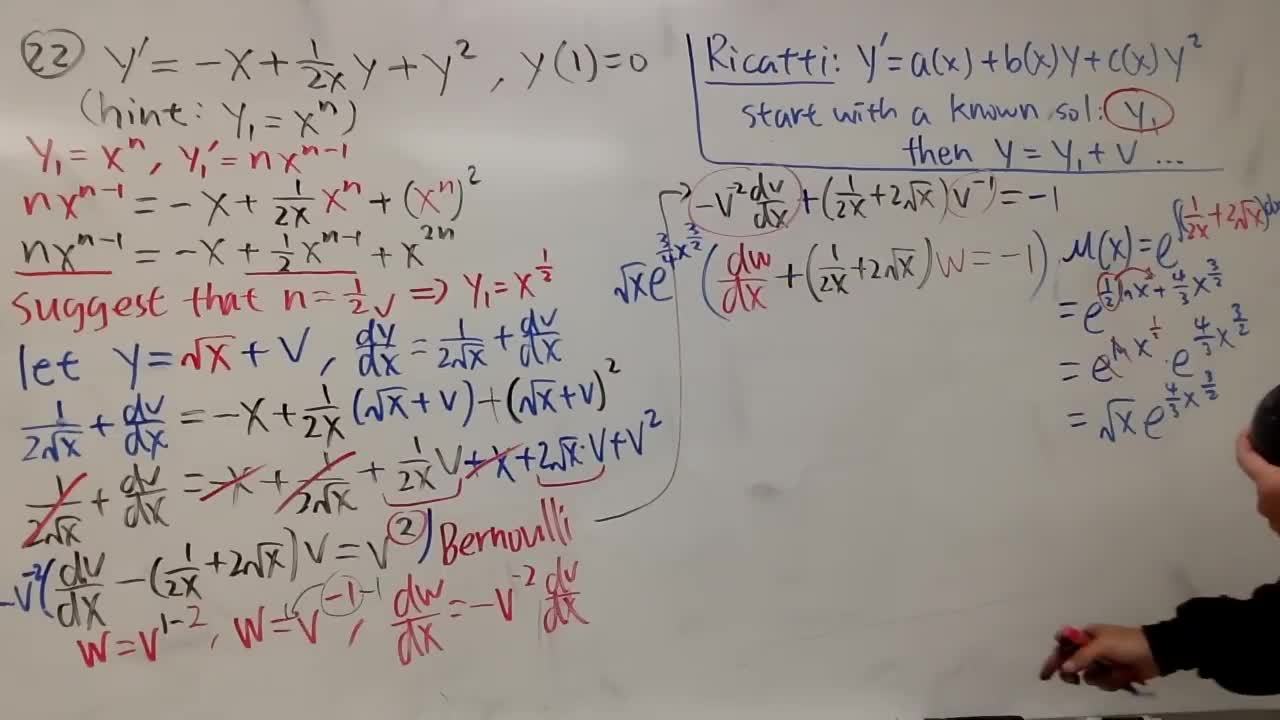 22 y' = -x + 1/(2x) y + y², y(1)=0
(hint: y₁ = xⁿ)
y₁ = xⁿ, y₁' = nxⁿ⁻¹
nxⁿ⁻¹ = -x + 1/(2x) xⁿ + (xⁿ)²
nxⁿ⁻¹ = -x + 1/2 xⁿ⁻¹ + x²ⁿ
suggest that n = 1/2 ✓ ⇒ y₁ = x^(1/2)
let y = √x + v, dy/dx = 1/(2√x) + dv/dx
1/(2√x) + dv/dx = -x + 1/(2x) (√x + v) + (√x + v)²
1/(2√x) + dv/dx = -x + 1/(2√x) + 1/(2x) v + x + 2√x·v + v²
-v⁻²(dv/dx - (1/(2x) + 2√x) v = v²) Bernoulli
w = v¹⁻², w = v⁻¹ ⁻¹, dw/dx = -v⁻² dv/dx
Ricatti: y' = a(x) + b(x)y + c(x)y²
start with a known sol: y₁
then y = y₁ + v ...
-v⁻² dv/dx + (1/(2x) + 2√x) v⁻¹ = -1
√x e^(3/4 x^(3/2)) (dw/dx + (1/(2x) + 2√x) w = -1)
μ(x) = e^(∫(1/(2x) + 2√x)dx
= e^((1/2) ln x + 4/3 x^(3/2)
= e^(ln x^(1/2)) · e^(4/3 x^(3/2))
= √x e^(4/3 x^(3/2))